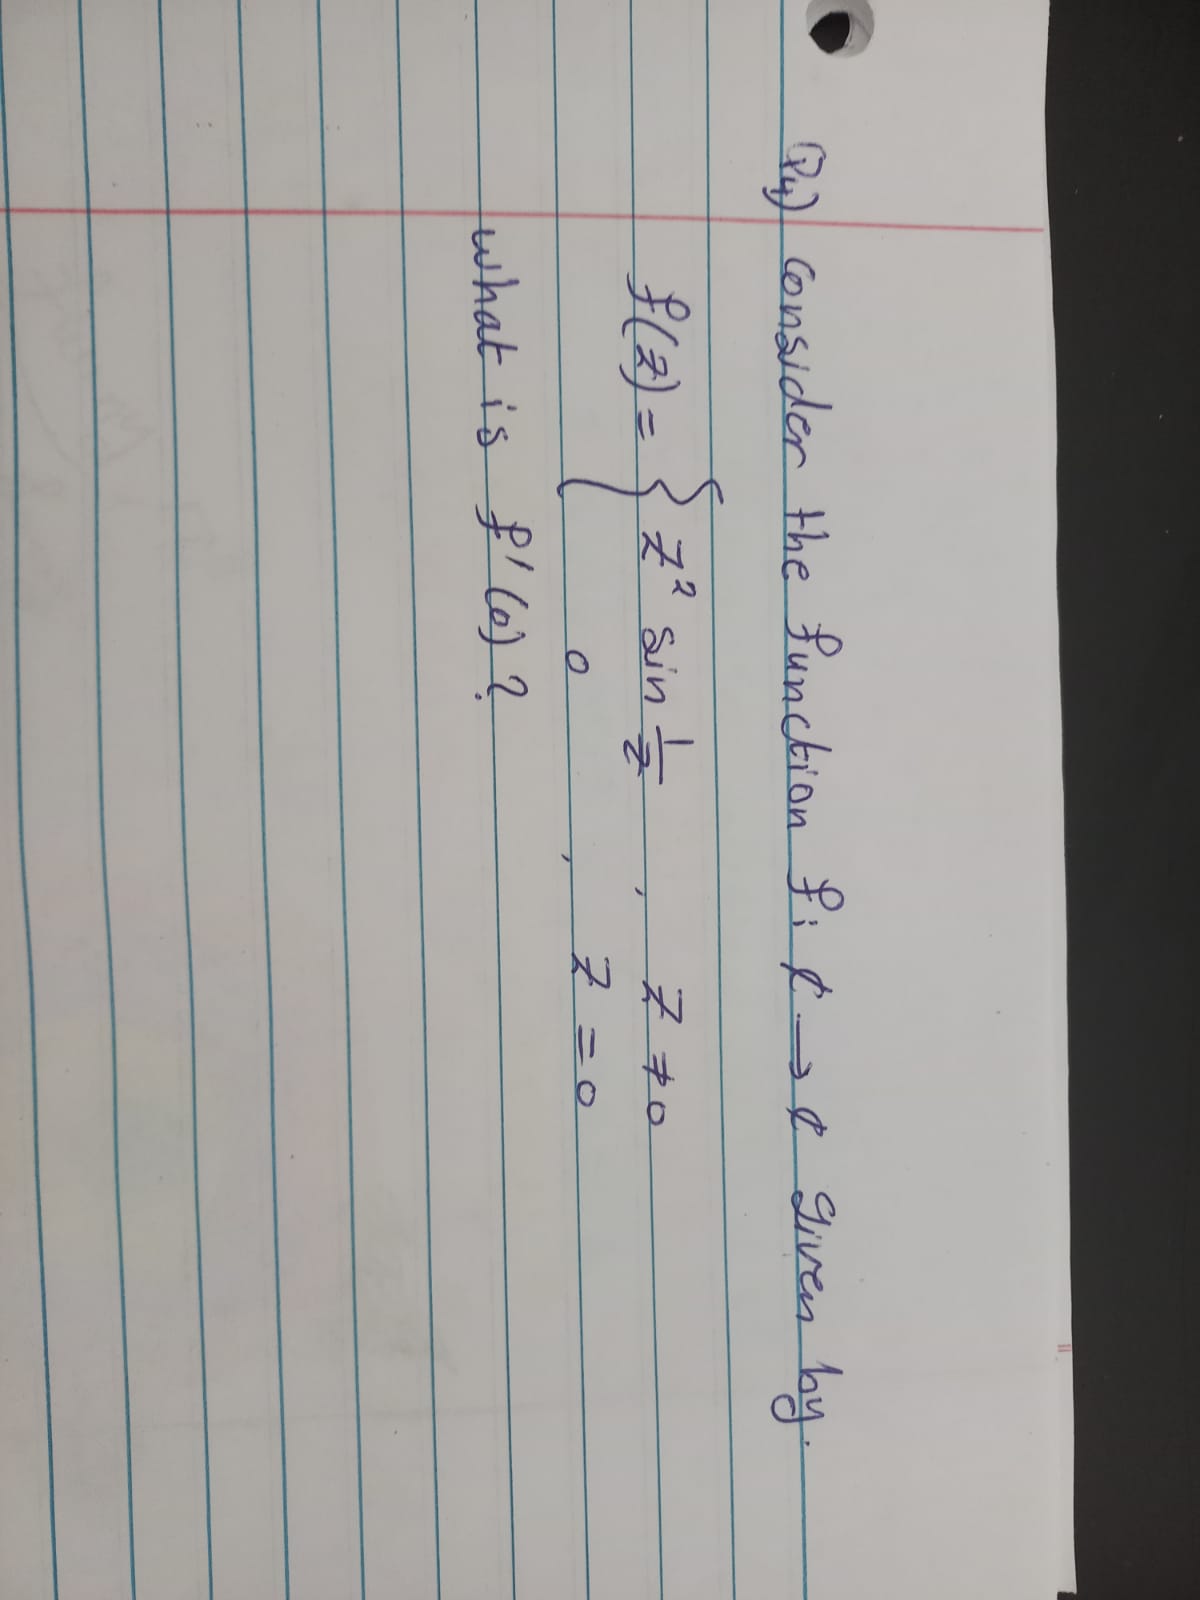 Q4) consider the function f: ¢ → ¢ given by.
f(z) = { z² sin 1/z , z ≠ 0
0 , z = 0
what is f'(0)?